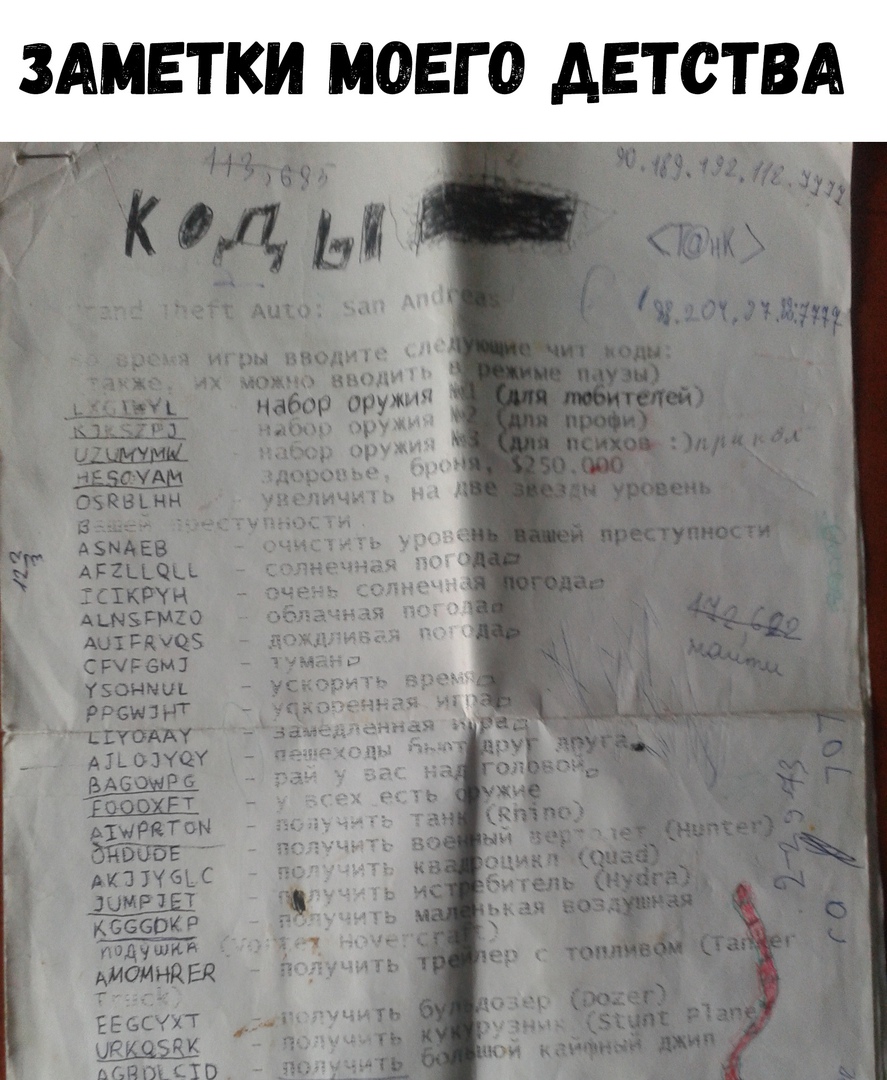 ЗАМЕТКИ МОЕГО ДЕТСТВА
113,685
90.189.192.112.7777
КОДЫ
<Т@нК>
Grand Theft Auto: San Andreas
198.204.97.88:7777
Во время игры вводите следующие чит коды:
также, их можно вводить в режиме паузы)
LXGIWYL набор оружия №1 (для любителей)
KJKSZPJ - набор оружия №2 (для профи)
UZUMYMW набор оружия №3 (для психов :) прикол
HESOYAM здоровье, броня, $250.000
OSRBLHH - увеличить на две звезды уровень
Вашей преступности
123
ASNAEB - очистить уровень вашей преступности
AFZLLQLL - солнечная погода
ICIKPYH - очень солнечная погода
ALNSFMZO - облачная погода
172,622
AUIFRVQS - дождливая погода
найти
CFVFGMJ - туман
YSOHNUL - ускорить время
PPGWJHT - ускоренная игра
LIYOAAY - замедленная игра
AJLOJYQY - пешеходы бьют друг друга
BAGOWPG - рай у вас над головой
FOOOXFT - у всех есть оружие
AIWPRTON - получить танк (Rhino)
OHDUDE - получить военный вертолет (Hunter)
AKJJYGLC - получить квадроцикл (Quad)
JUMPJET - получить истребитель (Hydra)
KGGGDKP - получить маленькая воздушная
подушка (Vortex Hovercraft)
AMOMHRER - получить трейлер с топливом (Tanker
Truck)
EEGCYXT - получить бульдозер (Dozer)
URKQSRK - получить кукурузник (Stunt Plane
AGBDLCID - получить большой кайфный джип